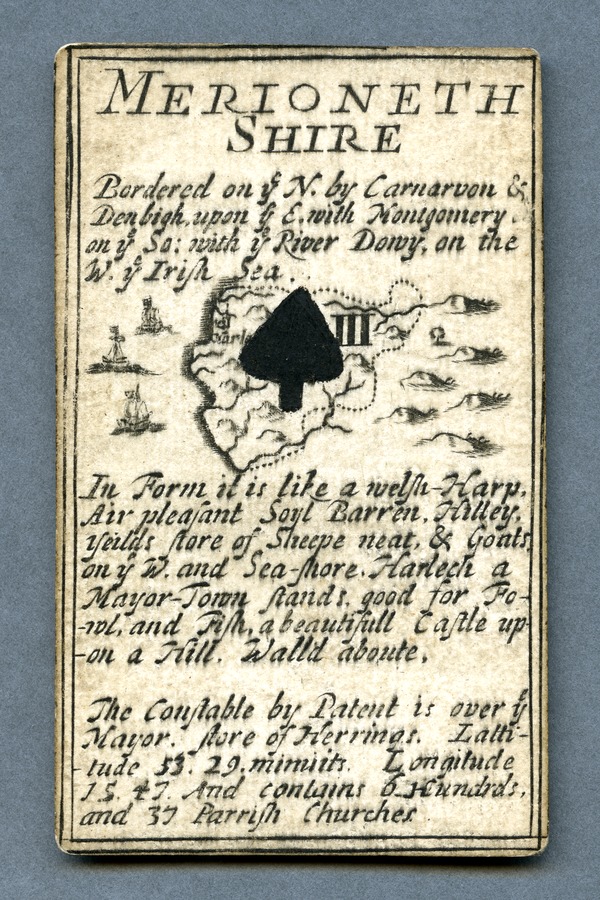 MERIONETH
SHIRE
Bordered on yͤ N. by Carnarvon &
Denbigh, upon yͤ E. with Montgomery
on yͤ So: with yͤ River Dowy, on the
W. yͤ Iriſh Sea.
III
In Form it is like a welſh-Harp,
Air pleaſant Soyl Barren, Hilley,
yeilds ſtore of Sheepe neat, & Goats
on yͤ W. and Sea-ſhore. Harlech a
Mayor-Town ſtands, good for Fo-
-wl, and Fiſh, a beautifull Caſtle up-
-on a Hill. Walld aboute,
The Conſtable by Patent is over yͤ
Mayor. ſtore of Herrings. Latti-
-tude 53. 29. minuits. Longitude
15. 47. And contains 6. Hundrds,
and 37 Parriſh Churches